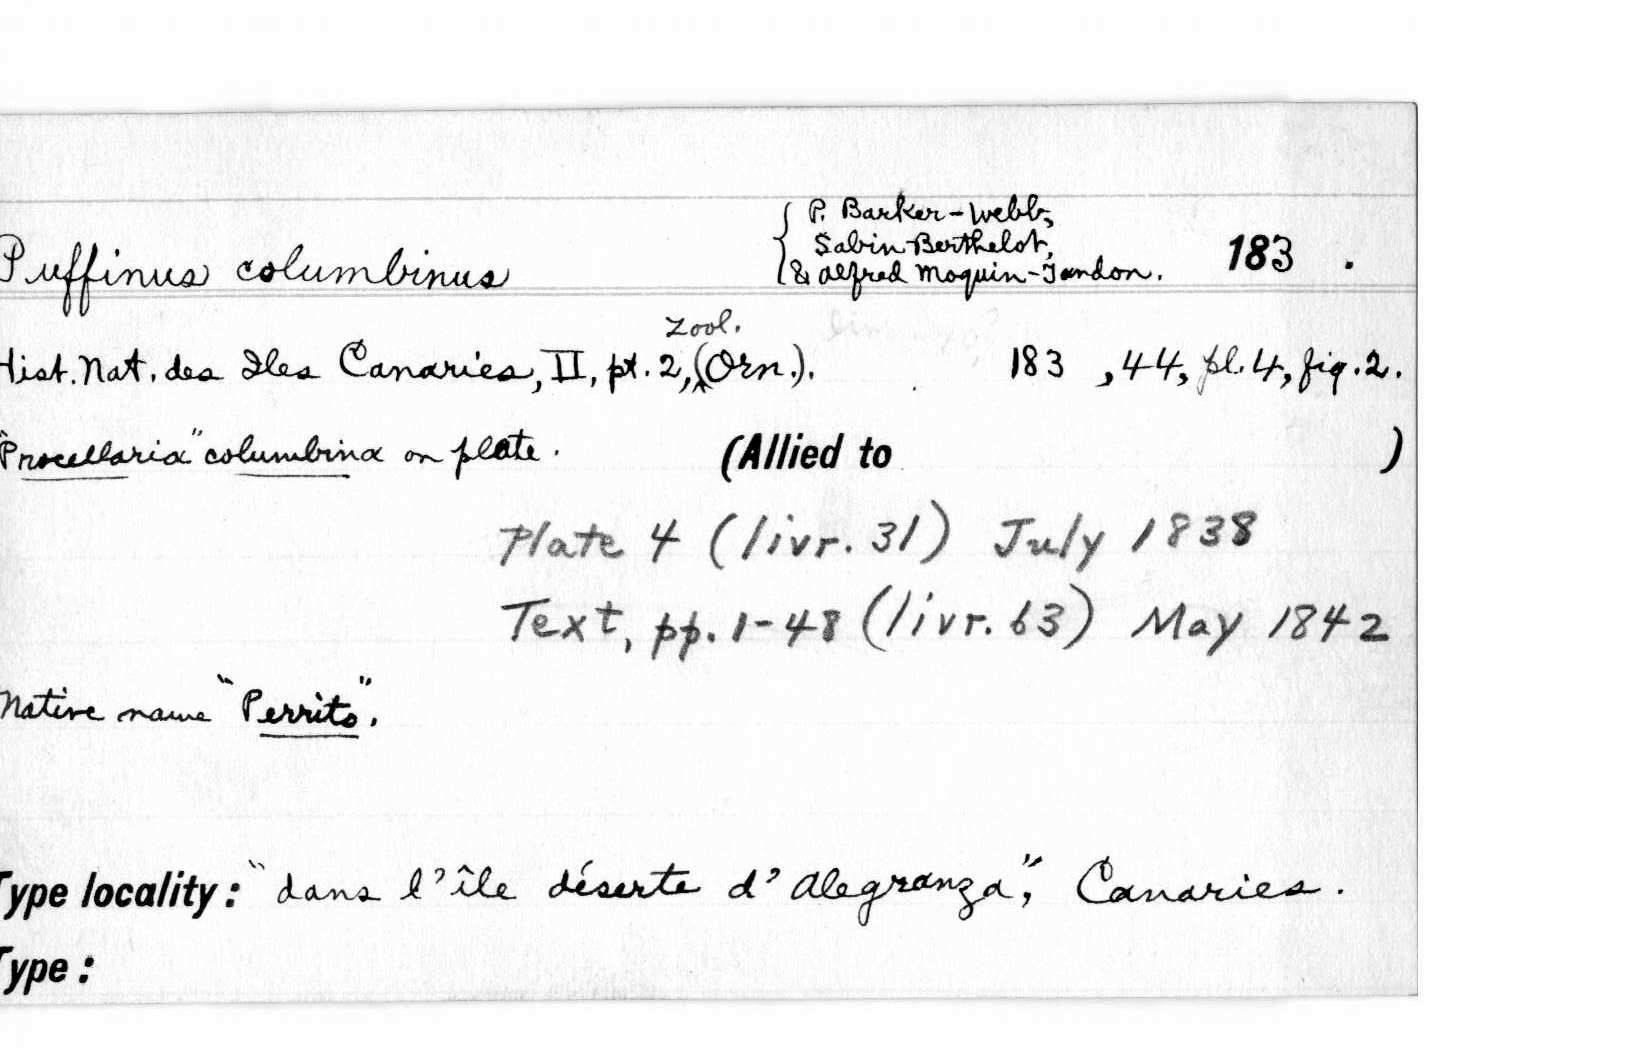 P. Barker-Webb,
Sabin Berthelot,
Puffinus columbinus & Alfred Moquin-Tandon. 183 .
Zool.
Hist. Nat. des Iles Canaries, II, pt. 2, (Orn.). 183 , 44, pl. 4, fig. 2.
"Procellaria" columbina on plate. (Allied to )
Plate 4 (livr. 31) July 1838
Text, pp. 1-48 (livr. 63) May 1842
Native name "Perrito".
Type locality: "dans l'île déserte d'Alegranza", Canaries.
Type: